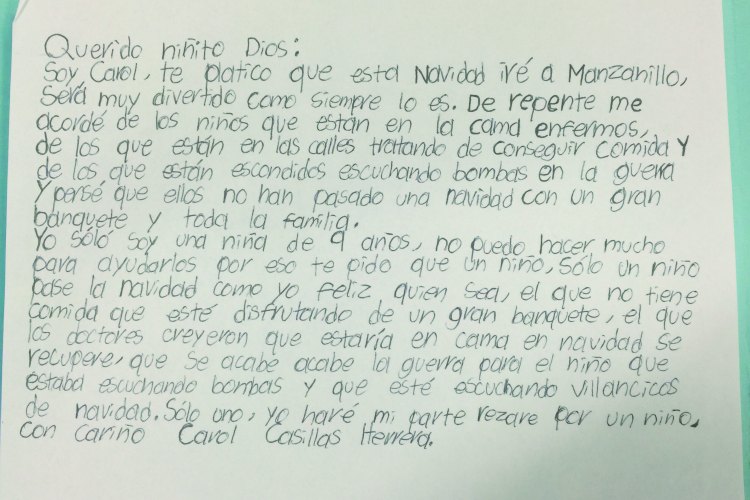 Querido niñito Dios:
Soy Carol, te platico que esta Navidad iré a Manzanillo,
Será muy divertido como siempre lo es. De repente me
acordé de los niños que están en la cama enfermos,
de los que están en las calles tratando de conseguir comida y
de los que están escondidos escuchando bombas en la guerra
Y pensé que ellos no han pasado una navidad con un gran
banquete y toda la familia.
Yo sólo soy una niña de 9 años, no puedo hacer mucho
para ayudarlos por eso te pido que un niño, Sólo un niño
pase la navidad como yo feliz quien sea, el que no tiene
comida que esté disfrutando de un gran banquete, el que
los doctores creyeron que estaría en cama en navidad se
recupere, que se acabe acabe la guerra para el niño que
estaba escuchando bombas y que esté escuchando villancicos
de navidad. Sólo uno, yo haré mi parte rezare por un niño,
con cariño Carol Casillas Herrera.